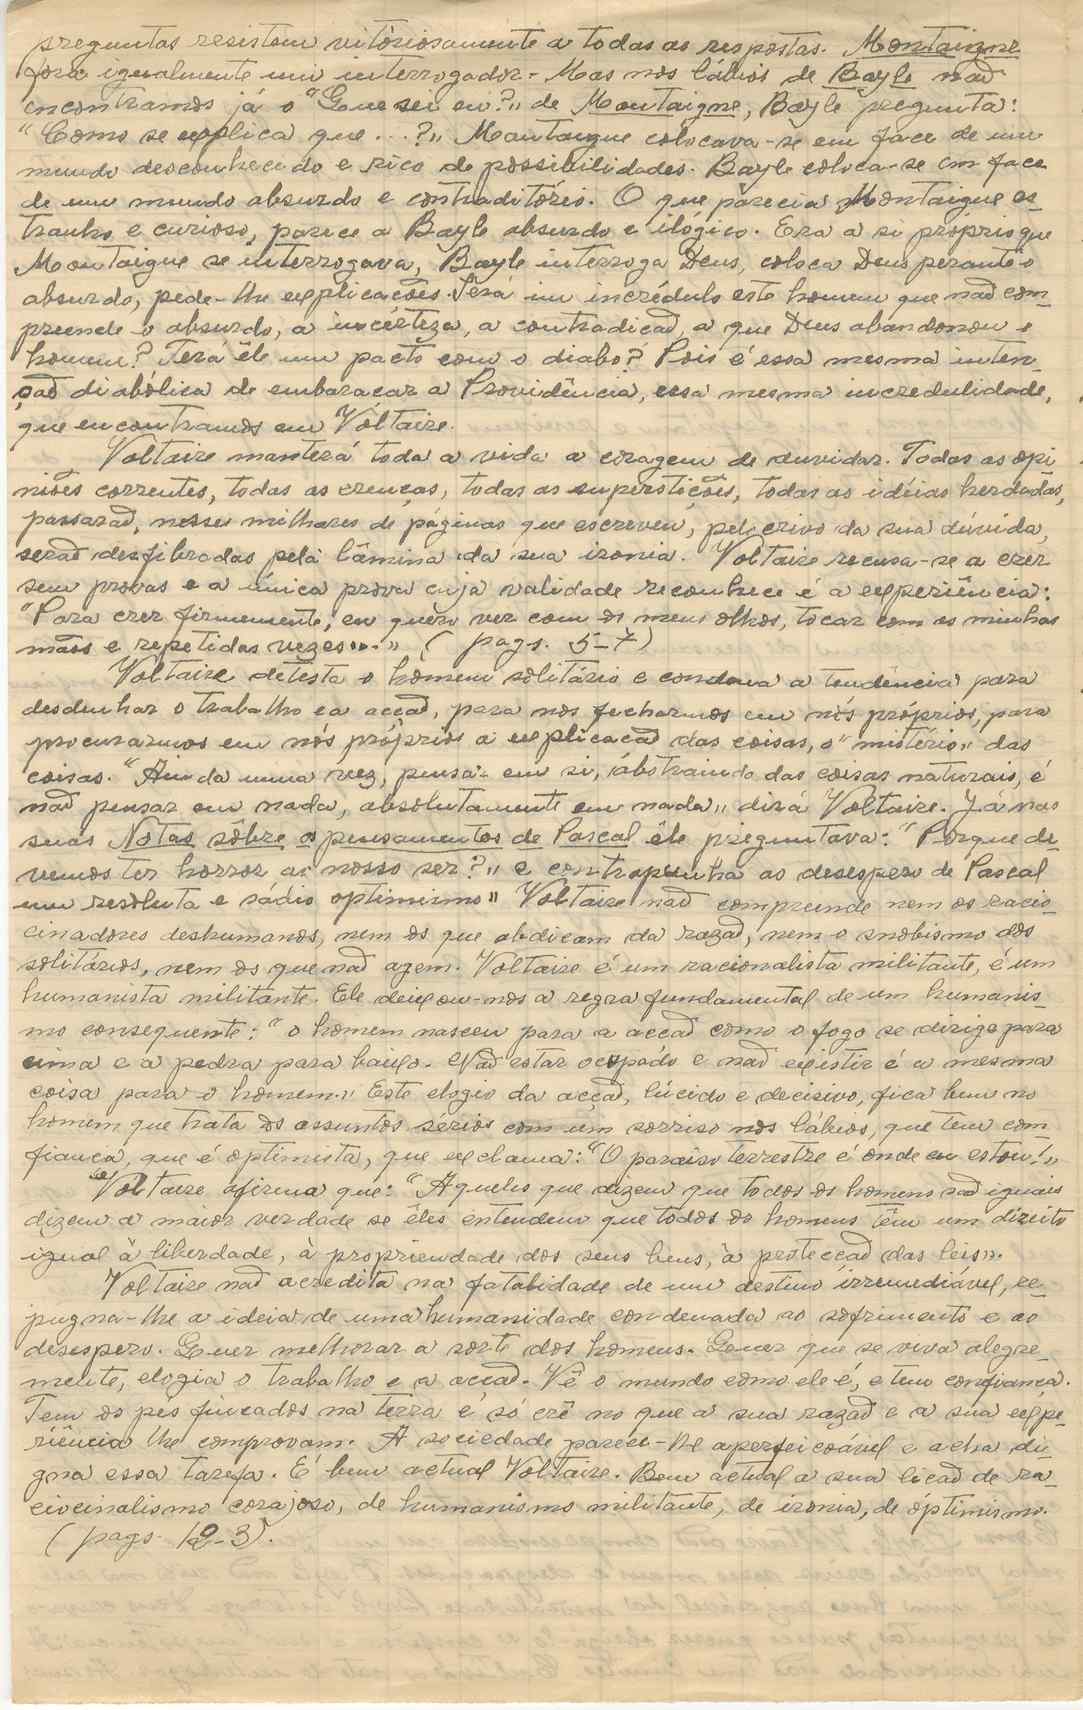 preguntas resistem vitóriosamente a todas as respostas. Montaigne
fora igualmente um interrogador - Mas nos lábios de Bayle não
encontramos já o "Que sei eu?" de Montaigne, Bayle pregunta:
"Como se explica que ...?" Montaigne colocava-se em face de um
mundo desconhecido e rico de possibilidades. Bayle coloca-se em face
de um mundo absurdo e contraditório. O que parecia a Montaigne es-
tranho e curioso, parece a Bayle absurdo e ilógico. Era a si próprio que
Montaigne se interrogava, Bayle interroga Deus, coloca Deus perante o
absurdo, pede-lhe explicações. Será um incrédulo este homem que não com-
preende o absurdo, a incerteza, a contradição, a que Deus abandonou o
homem? Terá êle um pacto com o diabo? Pois é essa mesma inten-
ção diabólica de embaraçar a Providência, essa mesma incredulidade,
que encontramos em Voltaire.
Voltaire manterá toda a vida a coragem de duvidar. Todas as opi-
niões correntes, todas as crenças, todas as superstições, todas as idéias herdadas,
passarão, nesses milhares de páginas que escreveu, pelo crivo da sua dúvida,
serão desfibradas pela lâmina da sua ironia. Voltaire recusa-se a crer
sem provas e a única prova cuja validade reconhece é a experiência:
"Para crer firmemente, eu quero ver com os meus olhos, tocar com as minhas
mãos e repetidas vezes..." ( pags. 5-7)
Voltaire detesta o homem solitário e condena a tendência para
desdenhar o trabalho e a acção, para nos fecharmos em nós próprios, para
procurarmos em nós próprios a explicação das coisas, o "mistério" das
coisas. "Ainda uma vez, pensar em si, abstraindo das coisas naturais, é
não pensar em nada, absolutamente em nada" dirá Voltaire. Já nas
suas Notas sôbre os pensamentos de Pascal êle preguntava: "Porque de-
vemos ter horror ao nosso ser?" e contrapunha ao desespero de Pascal
um resoluta e sádio optimismo" Voltaire não compreende nem os racio-
cinadores deshumanos, nem os que abdicam da razão, nem o snobismo dos
solitários, nem os que não agem. Voltaire é um racionalista militante, é um
humanista militante. Ele deixou-nos a regra fundamental de um humanis-
mo consequente: "o homem nasceu para a acção como o fogo se dirige para
cima e a pedra para baixo. Não estar ocupado e não existir é a mesma
coisa para o homem." Este elogio da acção, lúcido e decisivo, fica bem no
homem que trata os assuntos sérios com um sorriso nos lábios, que tem con-
fiança, que é optimista, que exclama: "O paraiso terrestre é onde eu estou!"
Voltaire afirma que: "Aqueles que dizem que todos os homens são iguais
dizem a maior verdade se êles entendem que todos os homens têm um direito
igual à liberdade, à propriendade dos seus bens, à protecção das leis".
Voltaire não acredita na fatalidade de um destino irremediável, re-
pugna-lhe a ideia de uma humanidade condenada ao sofrimento e ao
desespero. Quer melhorar a sorte dos homens. Quer que se viva alegre-
mente, elogia o trabalho e a acção. Vê o mundo como ele é, e tem confiança.
Tem os pes fincados na terra e só crê no que a sua razão e a sua expe-
riência lhe comprovam. A sociedade parece-lhe aperfeiçoável e acha di-
gna essa tarefa. É bem actual Voltaire. Bem actual a sua lição de ra-
ciocinalismo corajoso, de humanismo militante, de ironia, de óptimismo.
( pags. 12-3).